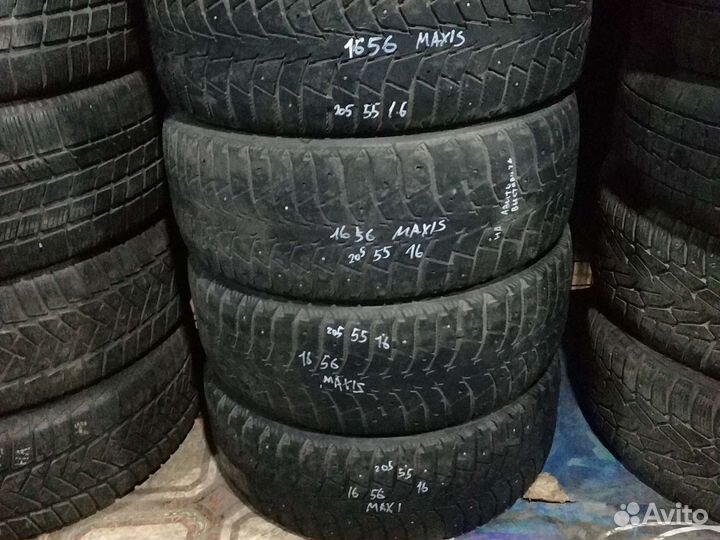 1656 MAXIS
205 55 16
1656 MAXIS
205 55 16
на Авито
выставить
205 55 16
16 56
MAXIS
205 55 16
16 56
MAXI
Avito